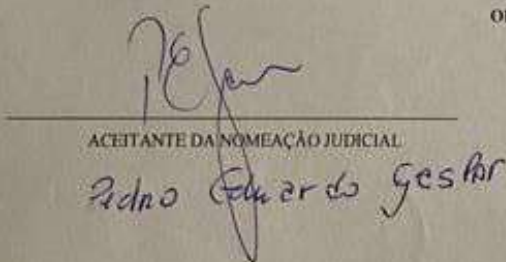 ACEITANTE DA NOMEAÇÃO JUDICIAL
Pedro Eduardo Gaspar